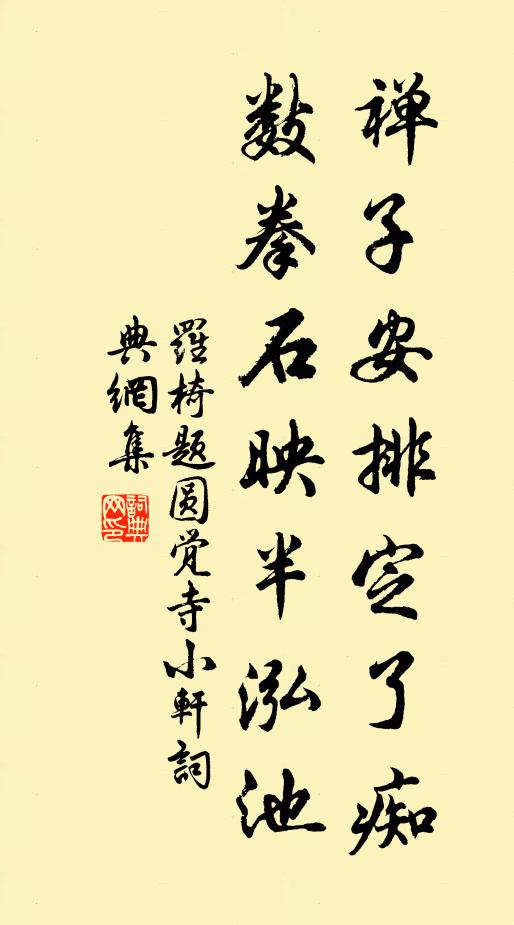 禅子安排定了痴
数拳石映半泓池
羅椅题圆觉寺小軒詞
典網集
詞典网印